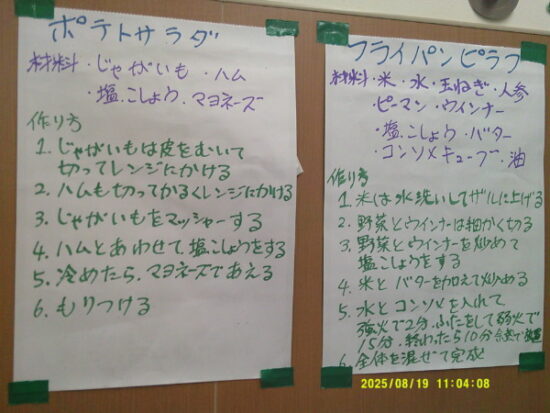 ポテトサラダ
材料・じゃがいも・ハム
・塩.こしょう.マヨネーズ
作り方
1. じゃがいもは皮をむいて
切ってレンジにかける
2. ハムも切ってかるくレンジにかける
3. じゃがいもをマッシャーする
4. ハムとあわせて塩こしょうをする
5. 冷めたら、マヨネーズであえる
6. もりつける
フライパンピラフ
材料・米・水・玉ねぎ・人参
・ピーマン・ウインナー
・塩.こしょう.バター
・コンソメキューブ・油
作り方
1. 米は水洗いしてザルに上げる
2. 野菜とウインナーは細かく切る
3. 野菜とウインナーを炒めて
塩こしょうをする
4. 米とバターを加えて炒める
5. 水とコンソメを入れて
強火で2分.ふたをして弱火で
15分.終わったら10分
6. 全体を混ぜて完成
2025/08/19 11:04:08